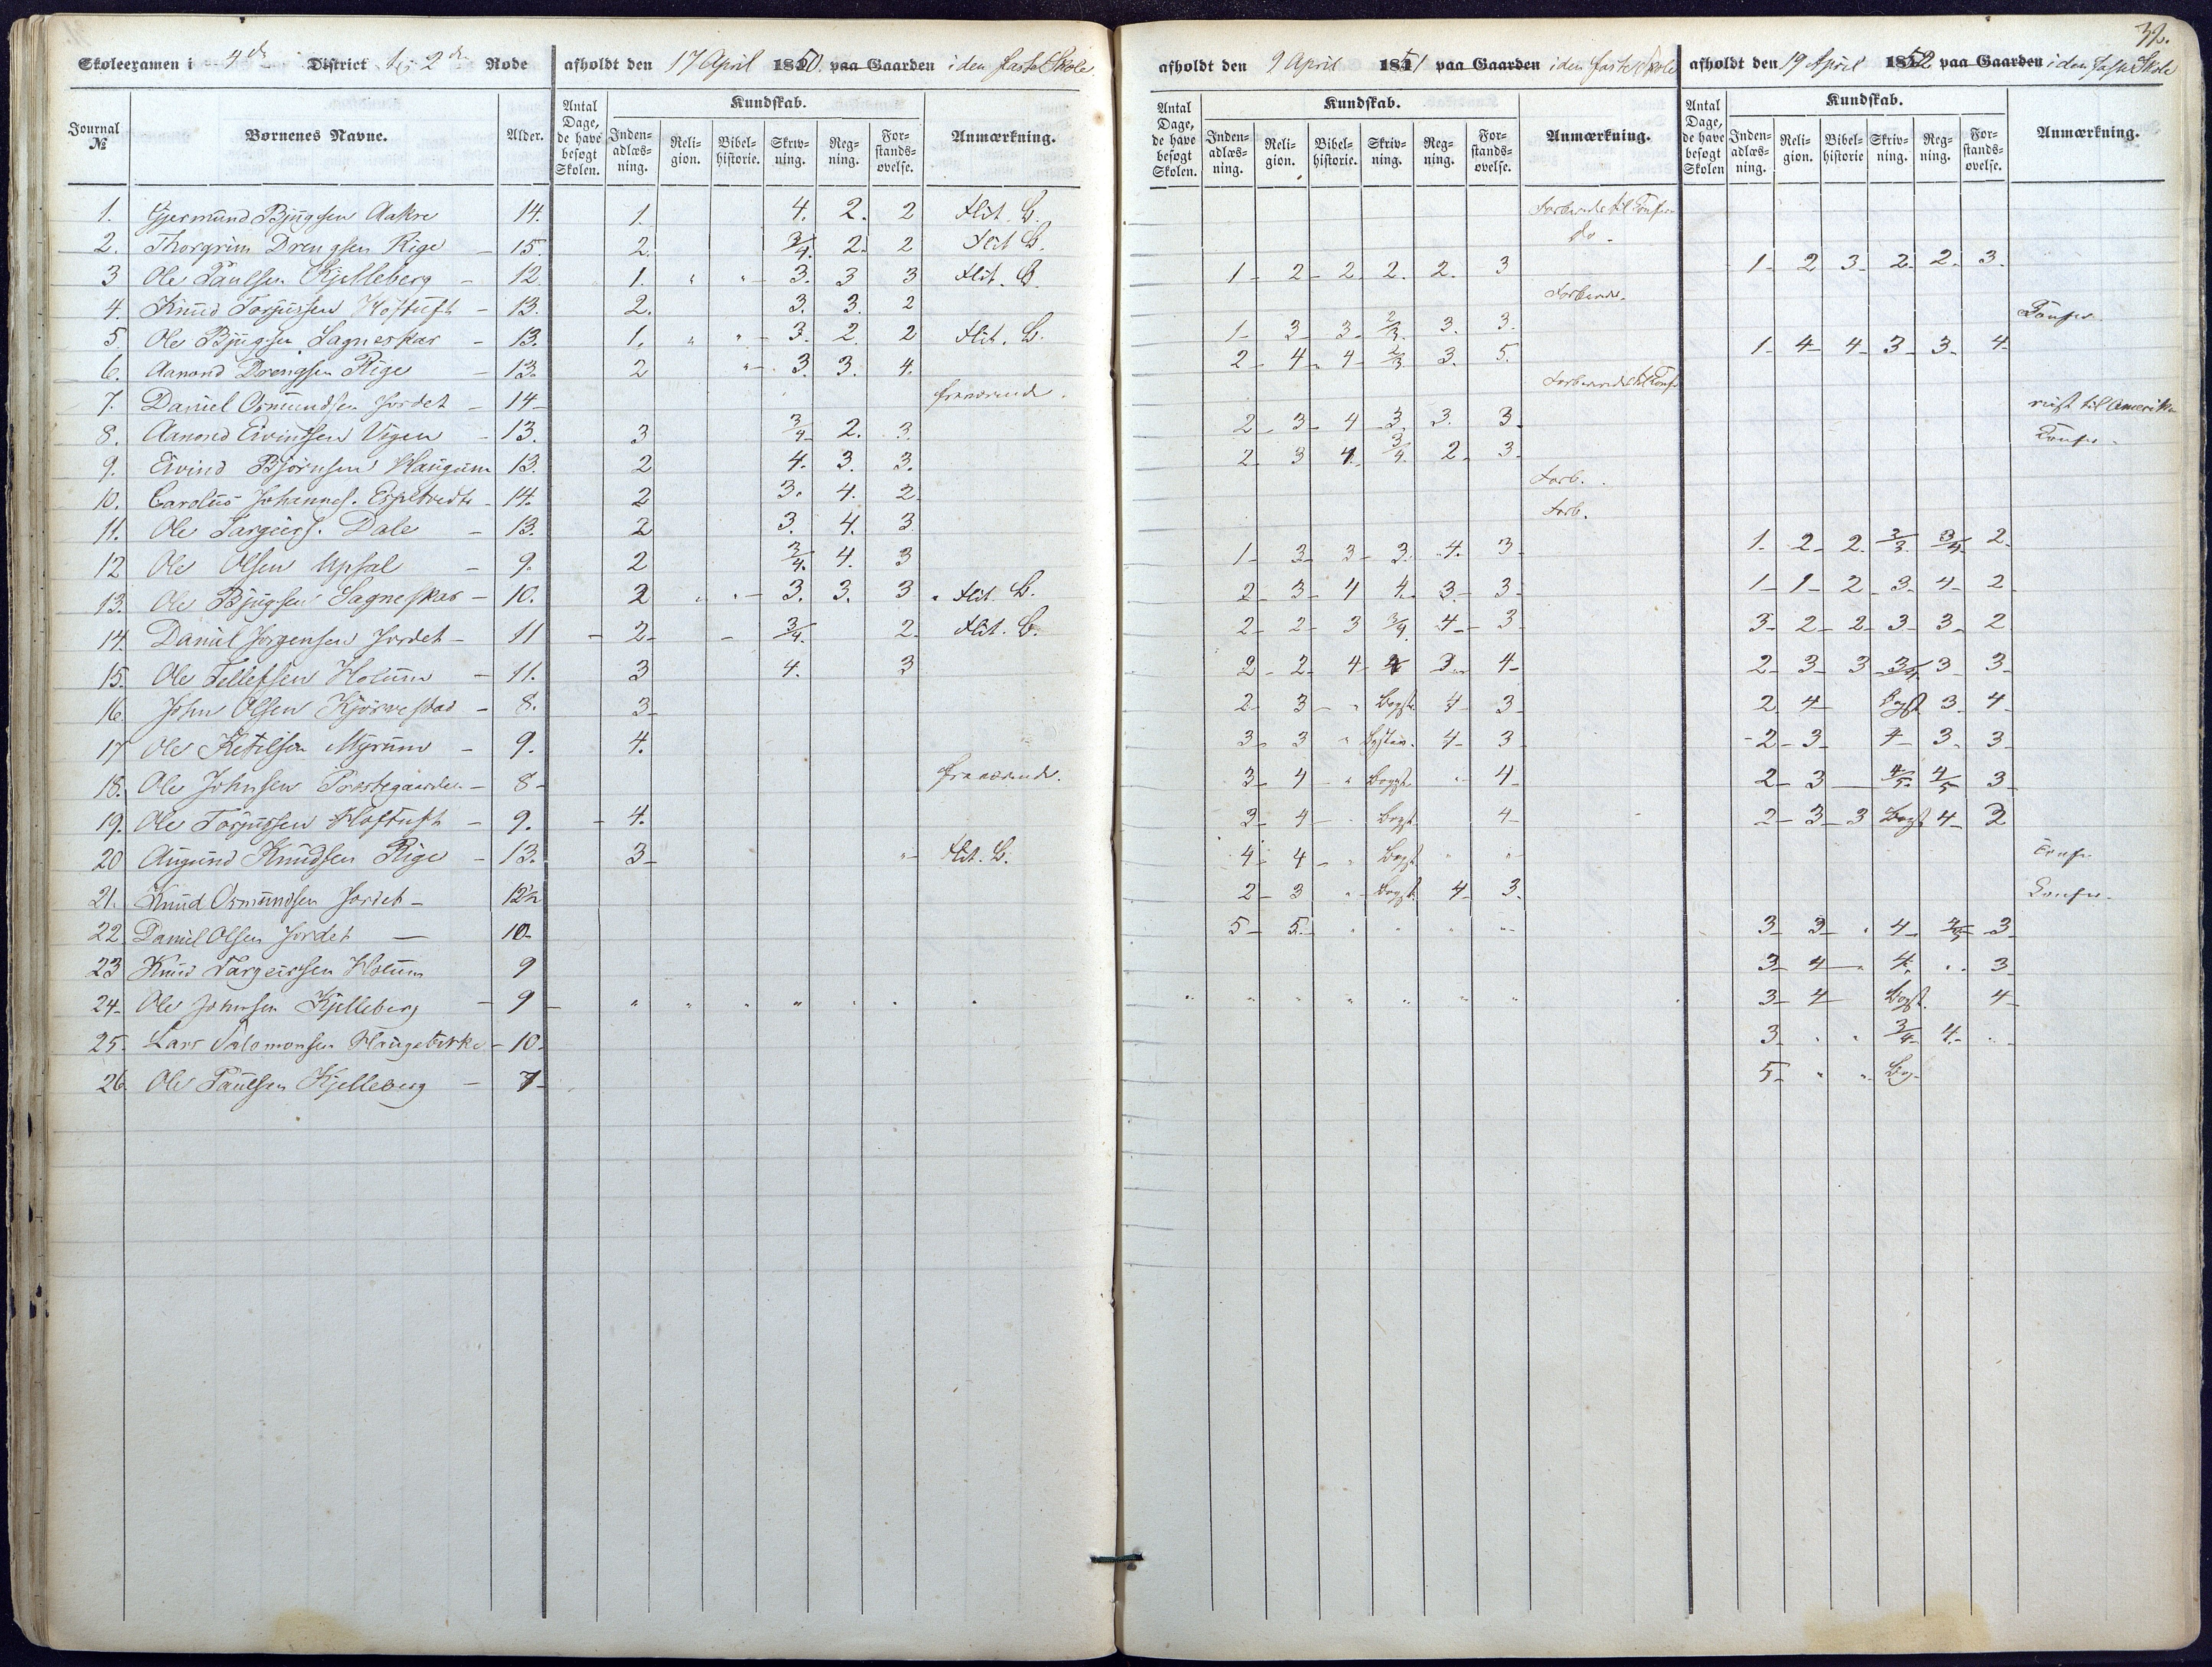 32.
Skoleexamen i 4de District 1 & 2de Rode afholdt den 17 April 1850. paa Gaarden i den faste Skole.
afholdt den 9 April 1851 paa Gaarden i den faste Skole afholdt den 19 April 1852 paa Gaarden i den faste Skole
Journal № Børnenes Navne. Alder. Antal Dage, de have besøgt Skolen. Kundskab. Inden-adlæs-ning. Reli-gion. Bibel-historie. Skriv-ning. Reg-ning. For-stands-øvelse. Anmærkning.
Antal Dage, de have besøgt Skolen. Kundskab. Inden-adlæs-ning. Reli-gion. Bibel-historie. Skriv-ning. Reg-ning. For-stands-øvelse. Anmærkning.
Antal Dage, de have besøgt Skolen Kundskab. Inden-adlæs-ning. Reli-gion. Bibel-historie Skriv-ning. Reg-ning. For-stands-øvelse. Anmærkning.
1. Gjermund Bjugsen Aakre 14. 1. 4. 2. 2 Flit. B.
2. Thorgrim Drengsen Rige – 15. 2. 3/4. 2. 2 Flit B. do –
3 Ole Paulsen Kjelleberg – 12 1. " " – 3. 3 3 Flit. B. 1 – 2 – 2 2. 2. 3 1 – 2 3 – 2. 2. 3.
4. Knud Torjussen Hoftuft – 13. 2. 3. 3. 2
5. Ole Bjugsen Sagneskar – 13. 1. " " – 3. 2. 2 Flit. B. 1 – 3 – 3 – 2/3. 3. 3. Confr.
6. Aanond Drengsen Rige – 13. 2 " – 3. 3. 4. 2 – 4 – 4 – 2/3 3. 5. 1 – 4 – 4 – 3 – 3 – 4
7. Daniel Osmundsen Jordet – 14 – fraværende.
8. Aanond Eivindsen Vigen – 13. 3 3/4 – 2. 3. 2 – 3 – 4 – 3. 3. 3 – reist til Amerika
9. Eivind Bjørnsen Haugum 13. 2 4. 3. 3. 2 – 3 4. – 3/4. 2 – 3 – Confr.
10. Carolus Johannes. – 14. 2 3. 4. 2 Forb.
11. Ole Targeirs. Dale – 13. 2 3. 4. 3 Forb.
12 Ole Olsen Upsal – 9. 2 3/4. 4. 3 1 – 3 – 3 – 3. 4. 3 – 1. 2 – 2. 2/3. 3/4 – 2.
13. Ole Bjugsen Sagneskar – 10. 2 " " – 3. 3. 3 " Flit. B. 2 – 3 – 4 4. 3 – 3 – 1 – 1 – 2 3 – 4 – 2
14. Daniel Jørgensen Jordet – 11 – 2 – – 3/4. 2 – Flit. B. 2 – 2 – 3 3/4. 4 – 3 – 3 – 2 – 2 – 3 – 3 – 2
15. Ole Tellefsen Holum – 11. 3 4. 3 2 – 2 – 4 – 4 3 – 4 – 2 – 3 – 3 3/4 3 3 –
16. John Olsen Kjørvestad – 8. 3 – 2 – 3 – " Bogst. 4 – 3 – 2. 4 – Bogst. 3. 4.
17 Ole Ketilsen Myrum – 9. 4. 3 – 3 " Bogstav. 4 – 3 – 2 – 3 – 4 – 3. 3
18. Ole Johnsen Præstegaarden – 8 – fraværende. 3 – 4 – " Bogst. " – 4 – 2 – 3 – 4/5. 4/5 3
19. Ole Torjussen Hoftuft – 9. – 4. 3 – 4 – " Bogst. 4 – 2 – 3 – 3 Bogst. 4 – 2
20 Augund Knudsen Rige – 13. 3 – " – Flit. B. 4 – 4 – " Bogst. " " Confr.
21. Knud Osmundsen Jordet – 12½ 2 – 3 " – Bogst. 4 – 3. Confr.
22. Daniel Olsen Jordet — 10 – 5 – 5. – " " " " – 3 – 3 – " 4 – 4/5 – 3 –
23 Knud Targeirsen Holum 9 3 – 4 – " 4. " " 3
24 – Ole Johnsen Kjelleberg – 9 – " " " " " " " " " " " " " " 3 – 4 Bogst. 4 –
25. Lars Salomonsen Haugebirke – 10. 3. " " 3/4 – 4. – "
26. Ole Paulsen Kjelleberg – 7 – 5. " " Bog.